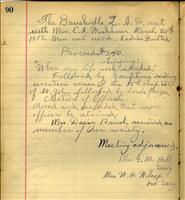 90
The Brushville L. A. S. met
with Mrs. C. A. Washburn March 20th
1913. Men cut wood. Ladies Quilted
Proceeds $2.40.
Singing:
"When my life work is ended."
Followed by Scripture reading
seventeen verses of the 15th chapter
of St. John followed by Lords Prayer
Election of officers.
Moved and seconded that more
officers be retained.
Mrs. Daisy Bande received as
member of our society.
Meeting adjourned.
Mrs G. M. Hill
Secty
Mrs. W. H. Wilcox